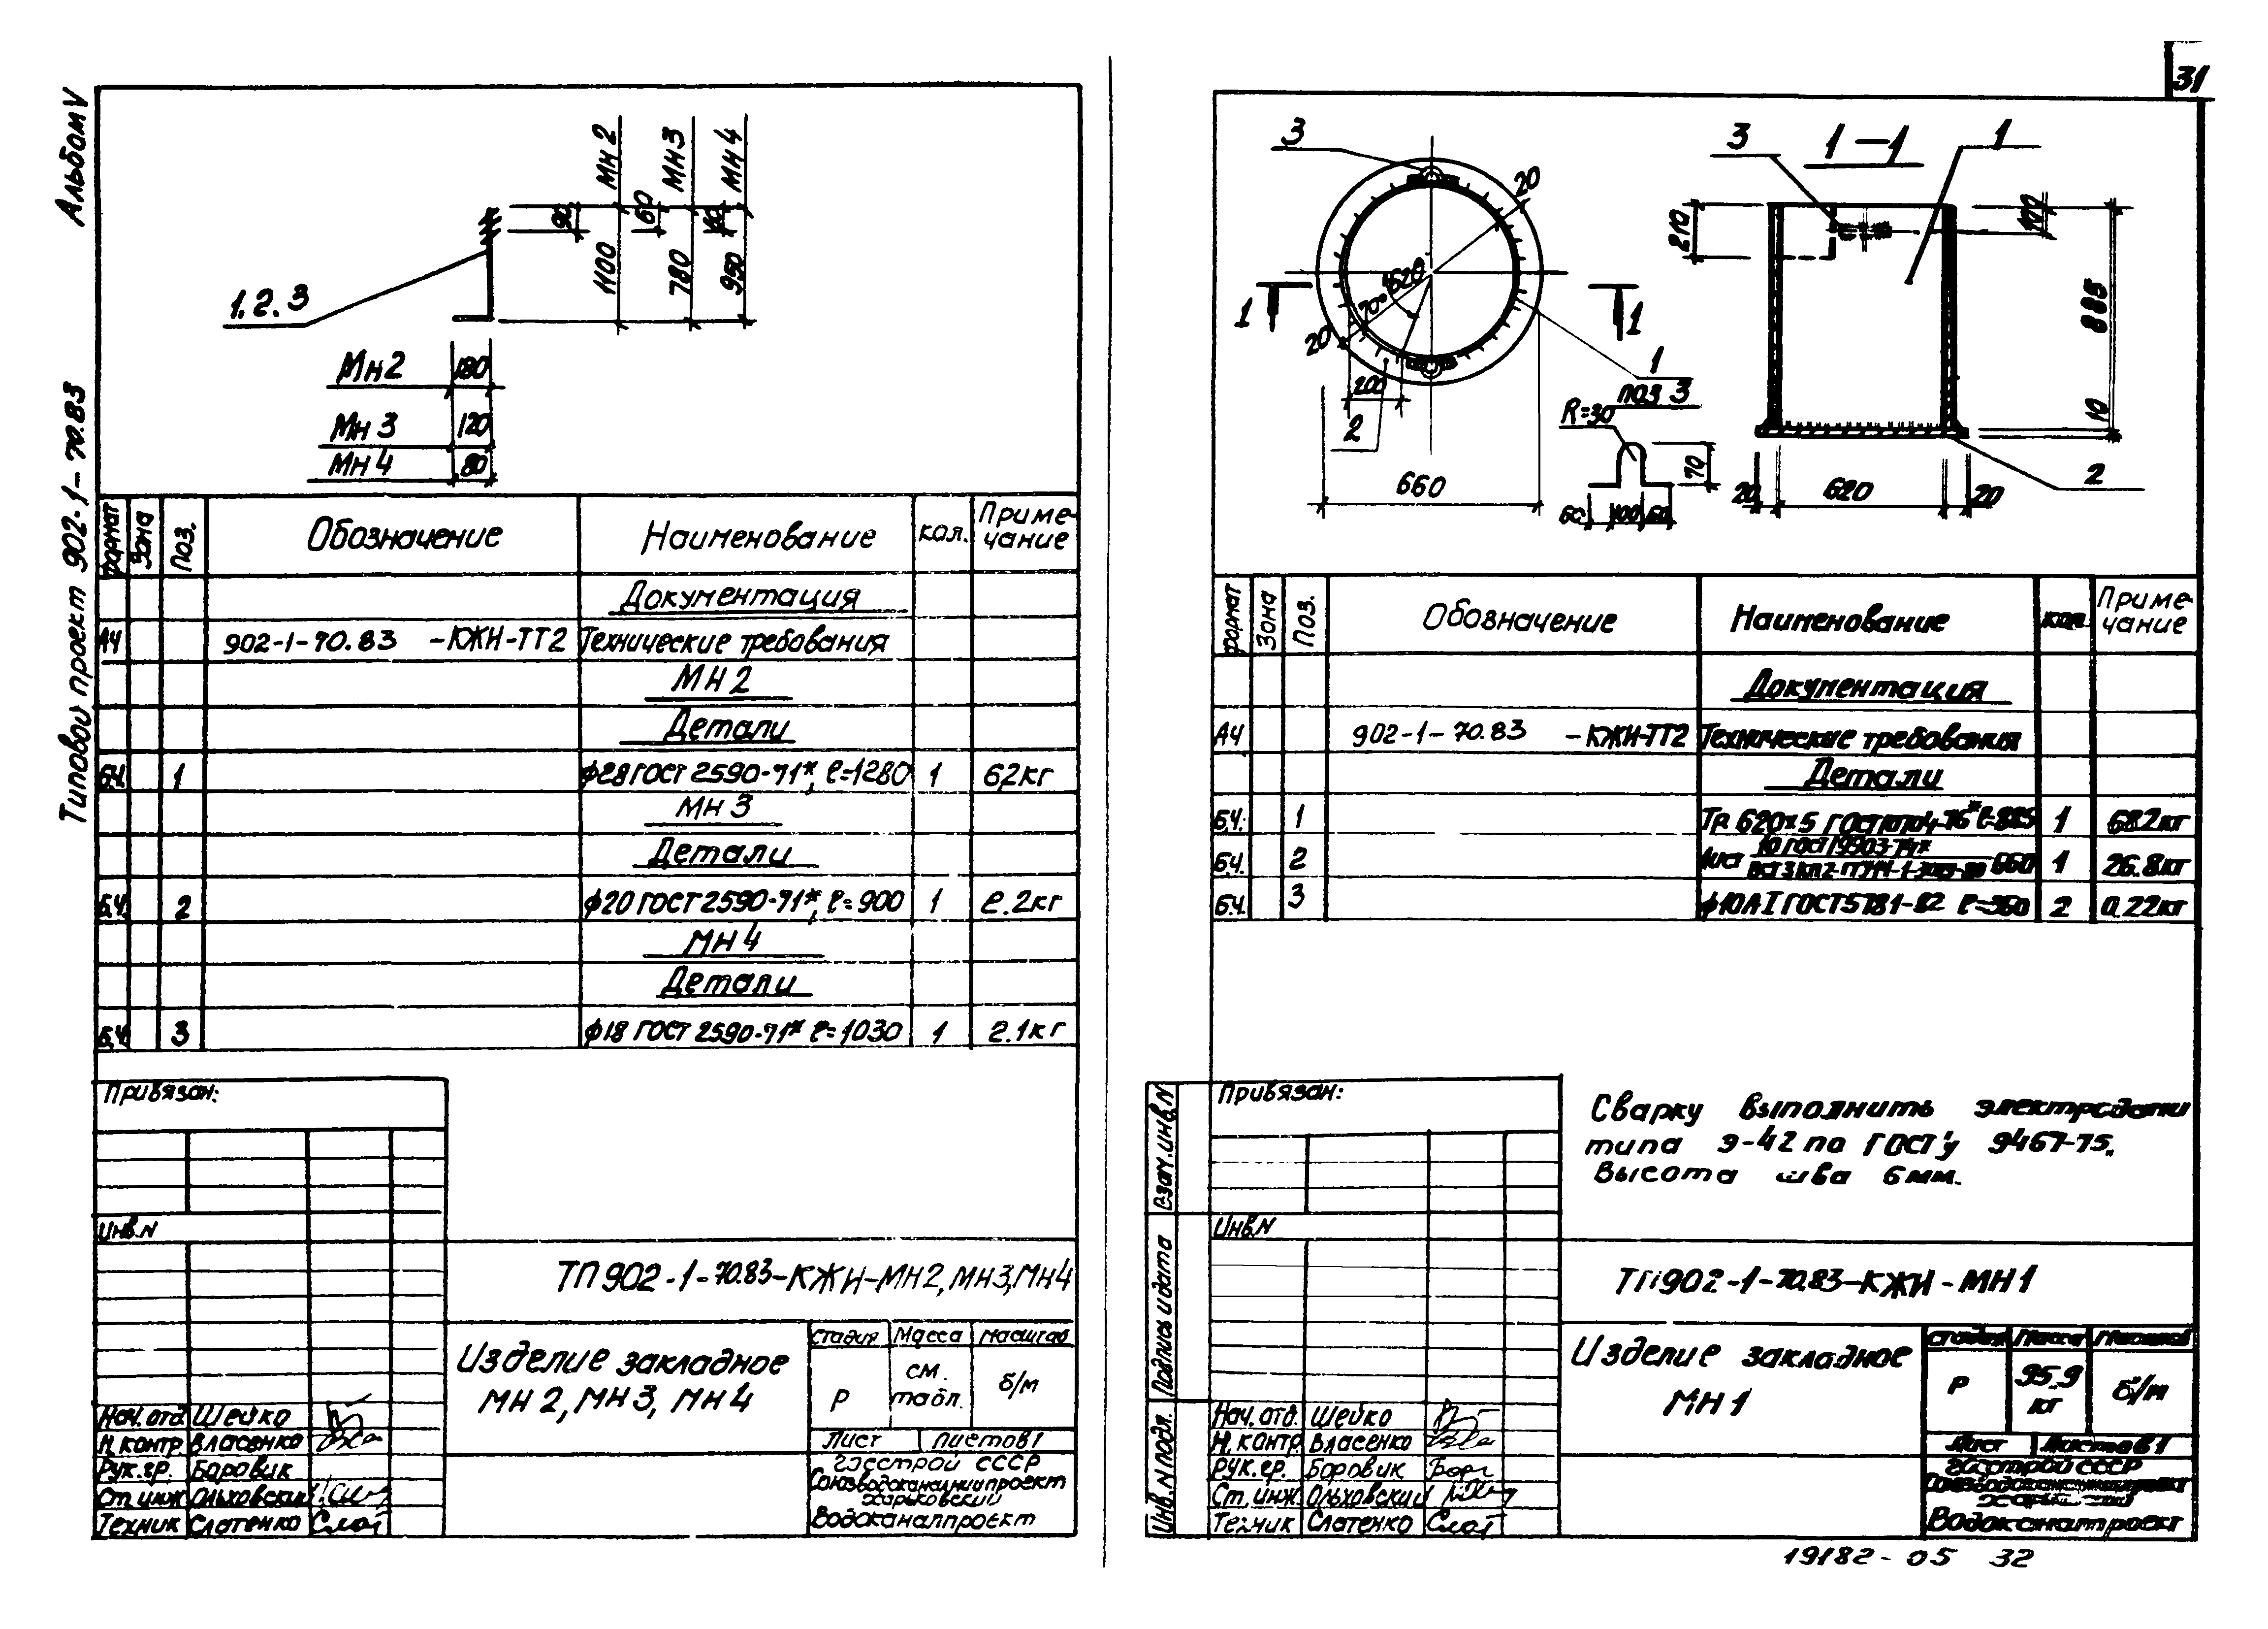 Альбом V
Типовой проект 902-1-70.83
31
Мн 2
Мн 3
Мн 4
90
60
1100
780
950
1.2.3
Мн 2 180
Мн 3 120
Мн 4 80
формат Зона Поз. Обозначение Наименование кол. Приме-
чание
Документация
А4 902-1-70.83 -КЖИ-ТТ2 Технические требования
МН 2
Детали
Б.Ч. 1 ф28 ГОСТ 2590-71*, ℓ=1280 1 6,2кг
МН 3
Детали
Б.Ч. 2 ф20 ГОСТ 2590-71*, ℓ=900 1 2.2кг
МН 4
Детали
Б.Ч. 3 ф18 ГОСТ 2590-71* ℓ=1030 1 2.1кг
Привязан:
Инв.N
ТП902-1-70.83-КЖИ-МН2, МН3, МН4
Изделие закладное
МН 2, МН 3, МН 4
стадия Масса масштаб
Р см.
табл. б/м
Лист Листов 1
Госстрой СССР
Союзводоканалниипроект
Харьковский
Водоканалпроект
Нач. отд. Шейко
Н. контр Власенко
Рук.гр. Боровик
Ст. инж Ольховский
Техник Слатенко
3
20
ф620
70°
20
1 1
200
2
660
1
поз 3
R=30
70
60 100 60
1-1
3 1
210
100
885
10
2
20 620 20
формат Зона Поз. Обозначение Наименование кол Приме-
чание
Документация
А4 902-1-70.83 -КЖИ-ТТ2 Технические требования
Детали
Б.Ч. 1 Тр 620х5 ГОСТ 10704-76* ℓ=885 1 68.2кг
Б.Ч. 2 Лист 10 ГОСТ 19903-74* 660 1 26.8кг
Б.Ч. 3 ф10АI ГОСТ 5781-82 ℓ=360 2 0.22кг
Сварку выполнить электродами
типа Э-42 по ГОСТ'у 9467-75.
Высота шва 6 мм.
Привязан:
Инв.N
Взам. инв. N
Подпись и дата
Инв. N подл.
ТП902-1-70.83-КЖИ-МН1
Изделие закладное
МН 1
стадия Масса Масштаб
Р 95.9
кг б/м
Лист Листов 1
Госстрой СССР
Союзводоканалниипроект
Харьковский
Водоканалпроект
Нач. отд. Шейко
Н. контр Власенко
Рук. гр. Боровик
Ст. инж Ольховский
Техник Слатенко
19182-05 32